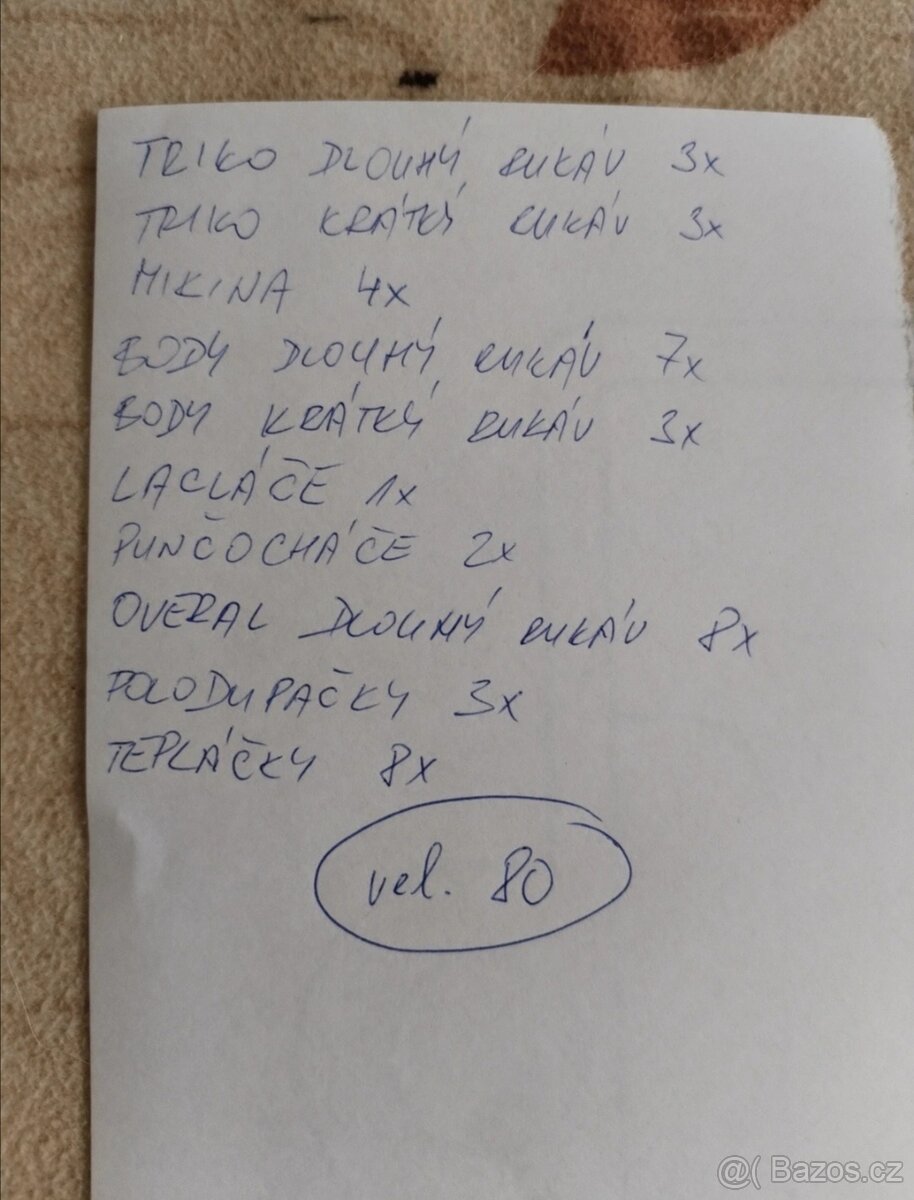 TRIKO DLOUHÝ RUKÁV 3x
TRIKO KRÁTKÝ RUKÁV 3x
MIKINA 4x
BODY DLOUHÝ RUKÁV 7x
BODY KRÁTKÝ RUKÁV 3x
LACLÁČE 1x
PUNČOCHÁČE 2x
OVERAL DLOUHÝ RUKÁV 8x
POLODUPAČKY 3x
TEPLÁČKY 8x
vel. 80
@( Bazos.cz